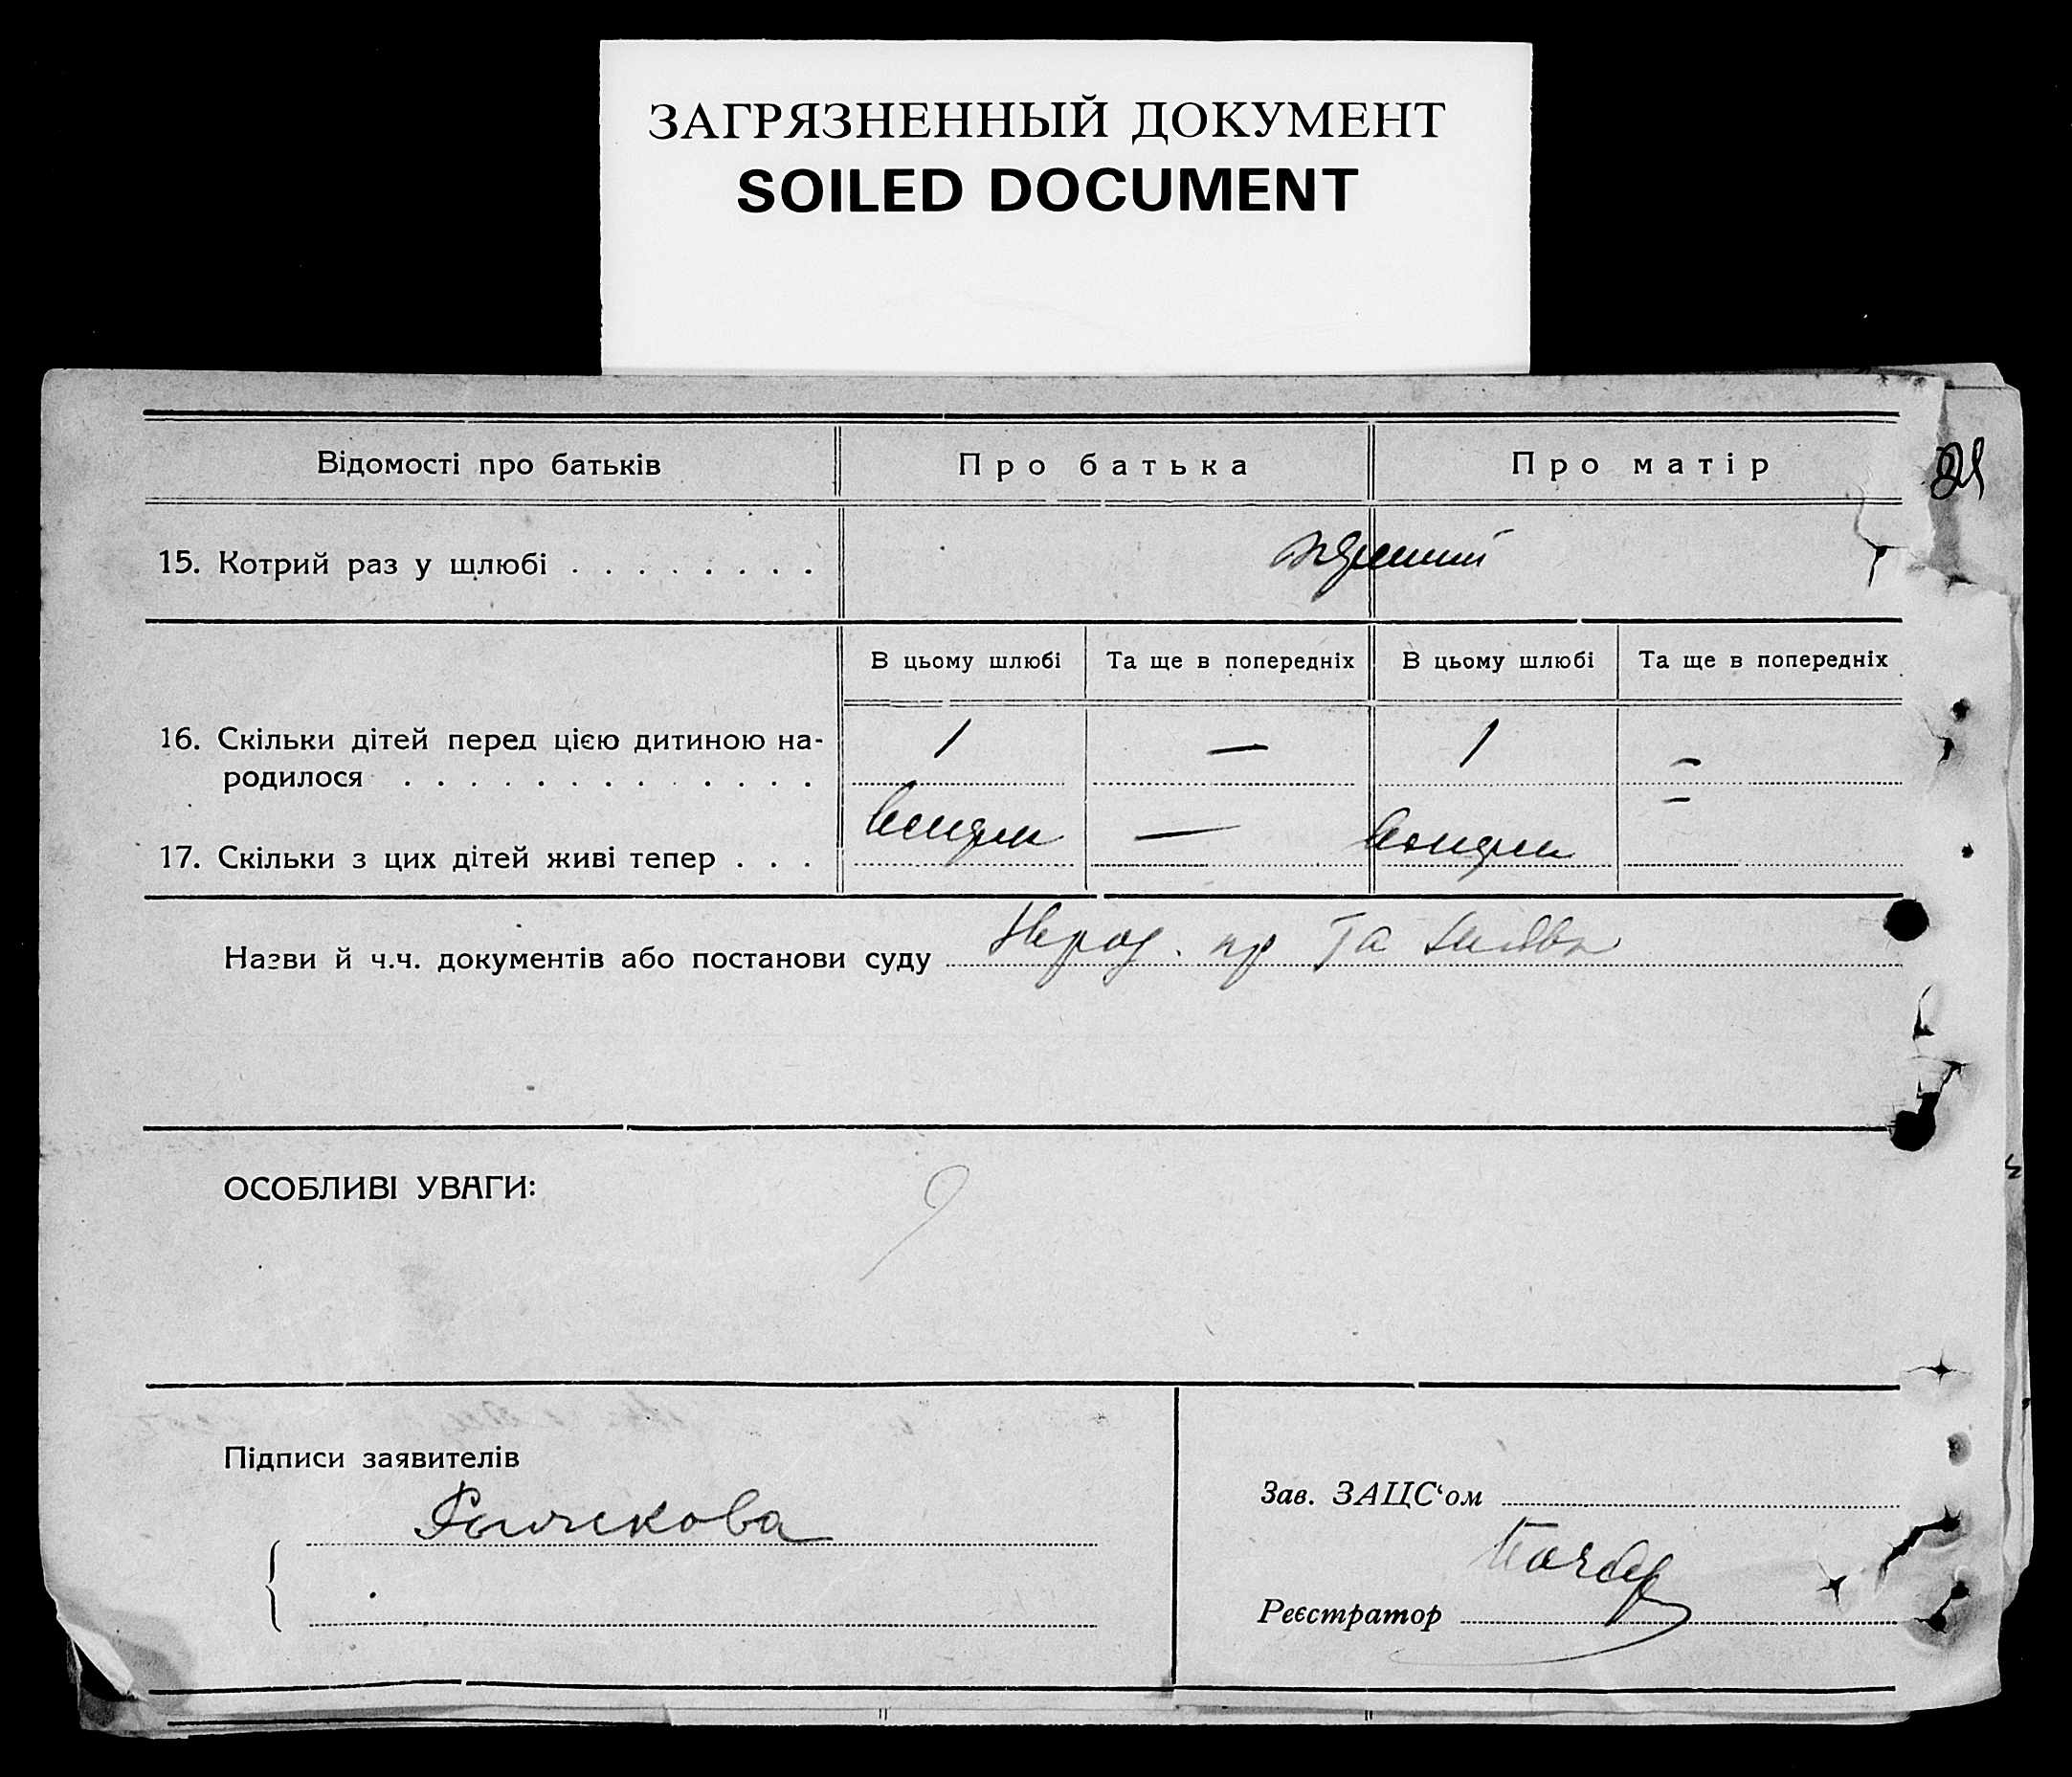 ЗАГРЯЗНЕННЫЙ ДОКУМЕНТ
SOILED DOCUMENT
Відомості про батьків Про батька Про матір
15. Котрий раз у шлюбі . . . . . . . .
В цьому шлюбі Та ще в попередніх В цьому шлюбі Та ще в попередніх
16. Скільки дітей перед цією дитиною на-
родилося . . . . . . . . . . . . . 1 — 1 –
17. Скільки з цих дітей живі тепер . . . — –
Назви й ч.ч. документів або постанови суду та
ОСОБЛИВІ УВАГИ:
Підписи заявителів
Зав. ЗАЦС‘ом
Реєстратор